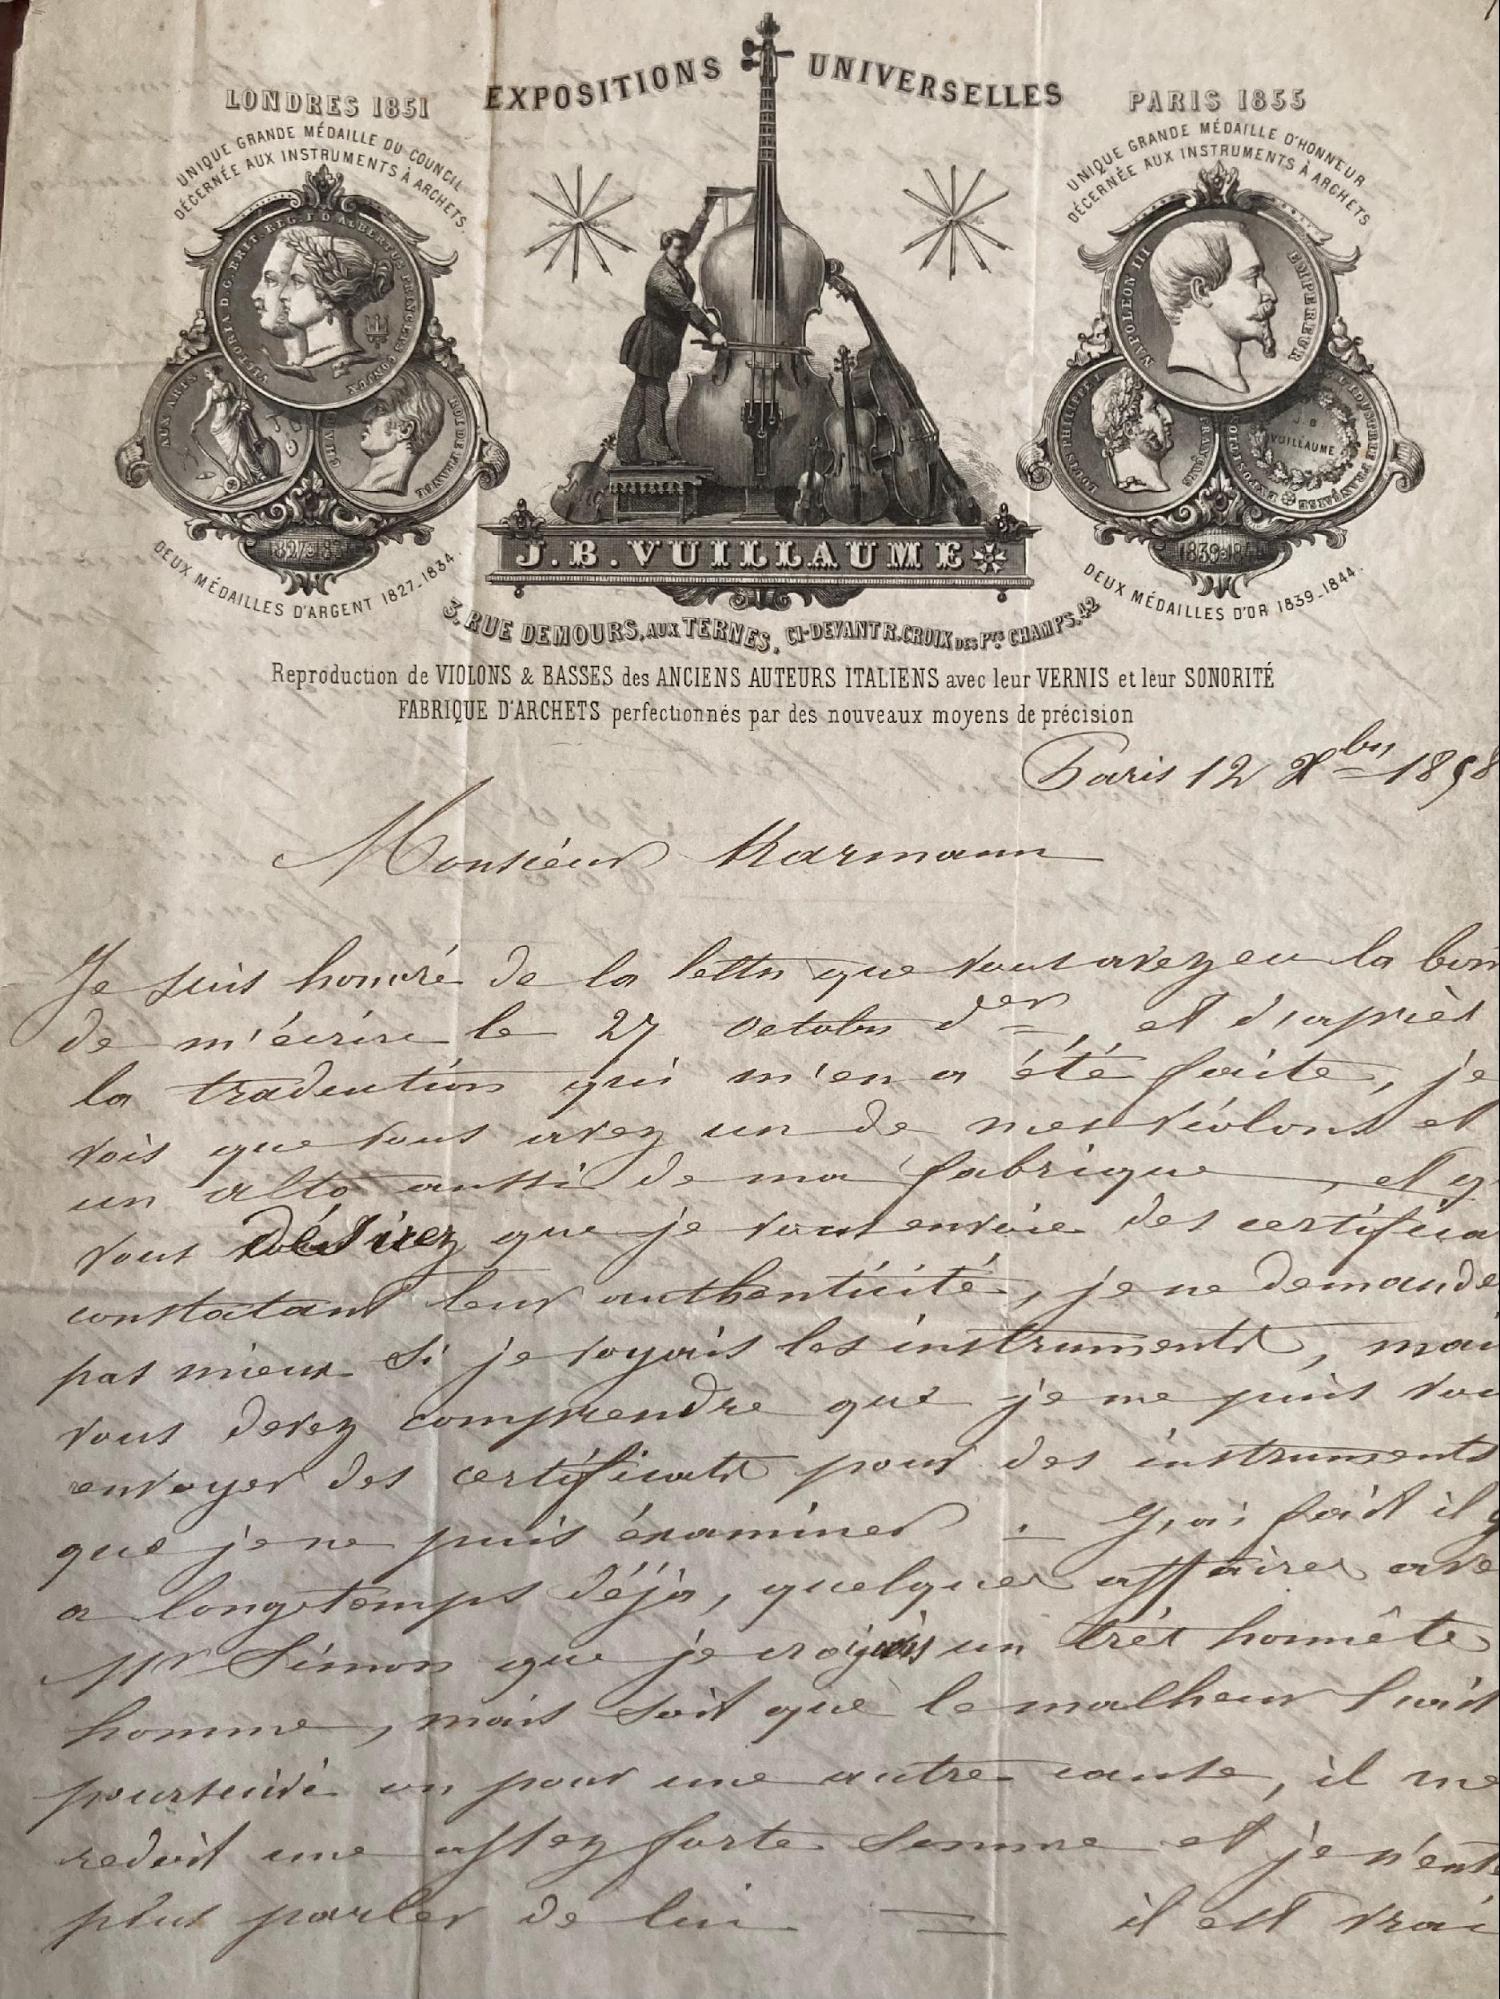 EXPOSITIONS UNIVERSELLES
LONDRES 1851
UNIQUE GRANDE MÉDAILLE DU COUNCIL
DÉCERNÉE AUX INSTRUMENTS À ARCHETS.
PARIS 1855
UNIQUE GRANDE MÉDAILLE D'HONNEUR
DÉCERNÉE AUX INSTRUMENTS À ARCHETS
VICTORIA D.G. BRIT. REG. F.D. ALBERTUS PRINCEPS CONJUX
AUX ARTS
ROI DE FRANCE
NAPOLEON III EMPEREUR
LOUIS PHILIPPE I
FRANÇAIS
J. B
VUILLAUME
EXPOSITION
FRANÇAISE
DEUX MÉDAILLES D'ARGENT 1827-1834.
1839-1844
DEUX MÉDAILLES D'OR 1839-1844.
J. B. VUILLAUME
3, RUE DEMOURS, AUX TERNES, CI-DEVANT R. CROIX DES Pts CHAMPS. 42
Reproduction de VIOLONS & BASSES des ANCIENS AUTEURS ITALIENS avec leur VERNIS et leur SONORITÉ
FABRIQUE D'ARCHETS perfectionnés par des nouveaux moyens de précision
Paris 12 Xbre 1858
Monsieur
Je suis honoré de la lettre que vous avez eu la bon
de m'écrire le 27 octobre der, et d'après
la traduction qui m'en a été faite, je
vois que vous avez un de mes violons et
un alto aussi de ma fabrique, et q
vous désirez que je vous envoie des certifica
constatant leur authenticité, je ne demande
pas mieux si je voyais les instruments, mai
vous devez comprendre que je ne puis vou
envoyer des certificats pour des instruments
que je ne puis examiner. J'ai fait il y
a longtemps déjà, quelques affaires ave
Mr Simon que je croyais un très honnête
homme, mais soit que le malheur l'ait
poursuivi ou pour une autre cause, il me
redoit une assez forte somme et je n'ent
plus parler de lui = il est vrai